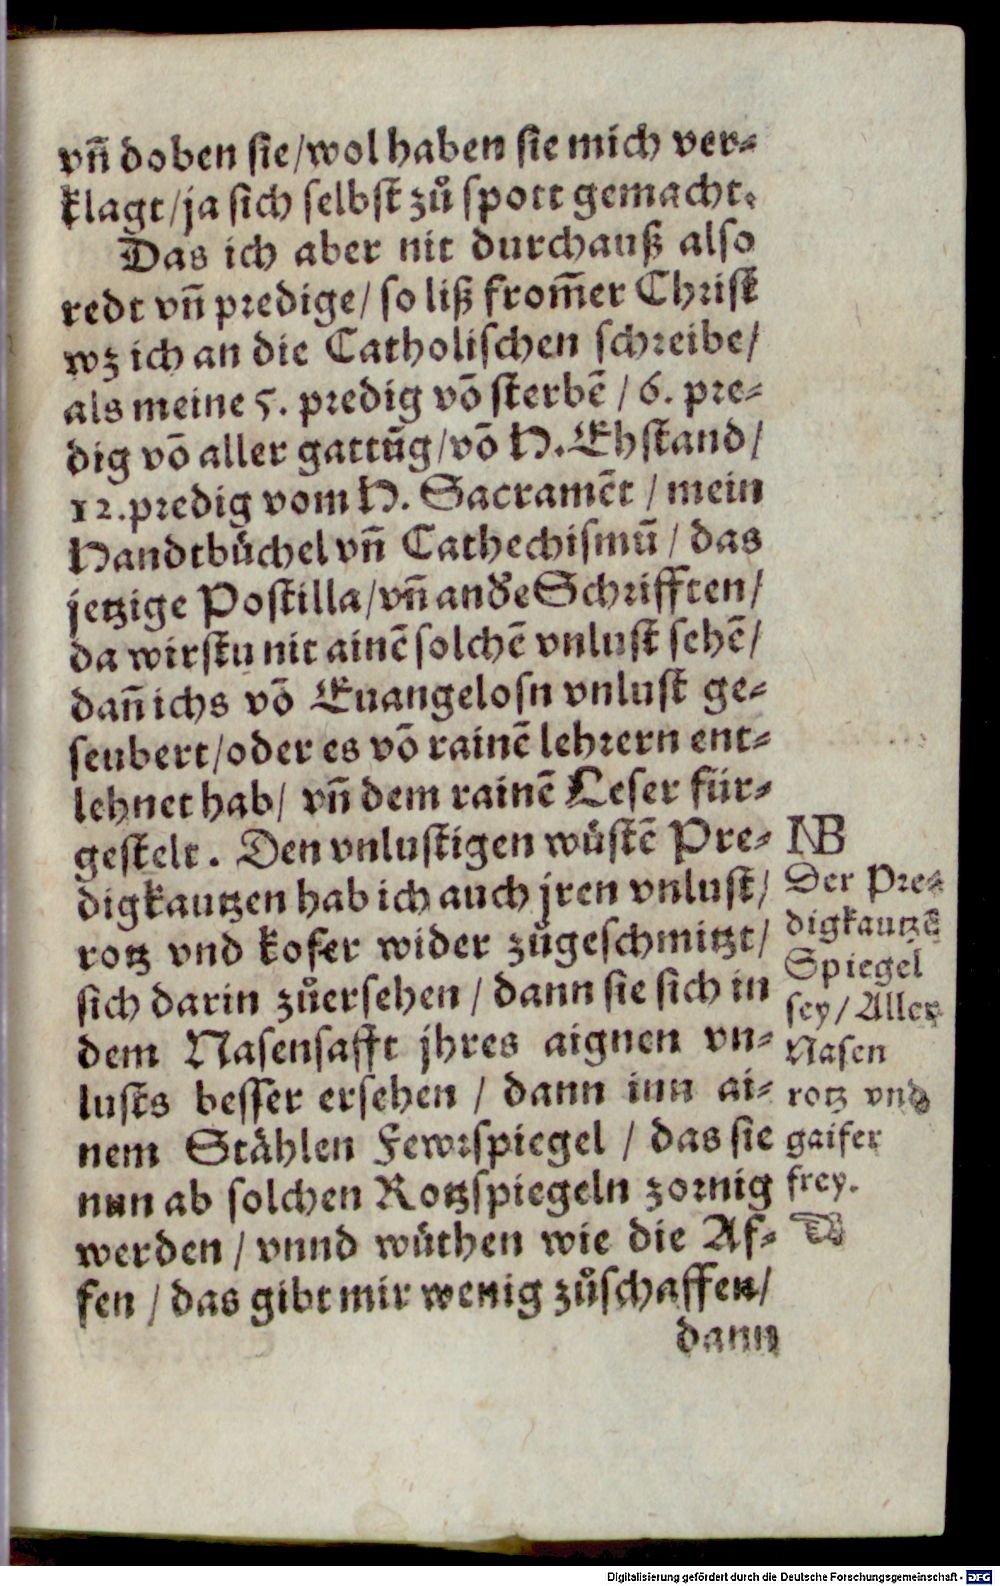 vñ doben sie/wol haben sie mich ver⸗
klagt/ja sich selbst zů spott gemacht.
Das ich aber nit durchauß also
redt vñ predige/ so liß from̄er Christ
wz ich an die Catholischen schreibe/
als meine 5. predig võ sterbẽ / 6. pre⸗
dig võ aller gattũg/võ H. Ehstand/
12. predig vom H. Sacramẽt / mein
Handtbüchel vñ Cathechismũ / das
jetzige Postilla/vñ andše Schrifften/
da wirstu nit ainẽ solchẽ vnlust sehẽ/
dañ ichs võ Euangelosn vnlust ge⸗
seubert/oder es võ rainẽ lehrern ent⸗
lehnet hab/ vñ dem rainẽ Leser für⸗
gestelt. Den vnlustigen wůstẽ Pre⸗
digkautzen hab ich auch jren vnlust/
rotz vnd kofer wider zůgeschmitzt/
sich darin zůersehen / dann sie sich in
dem Nasensafft jhres aignen vn⸗
lusts besser ersehen / dann inn ai⸗
nem Stählen Fewrspiegel / das sie
nun ab solchen Rotzspiegeln zornig
werden / vnnd wůthen wie die Af⸗
fen / das gibt mir wenig zůschaffen/
dann
NB
Der Pre⸗
digkautzẽ
Spiegel
sey/ Aller
Nasen
rotz vnd
gaifer
frey.
☜
Digitalisierung gefördert durch die Deutsche Forschungsgemeinschaft - DFG